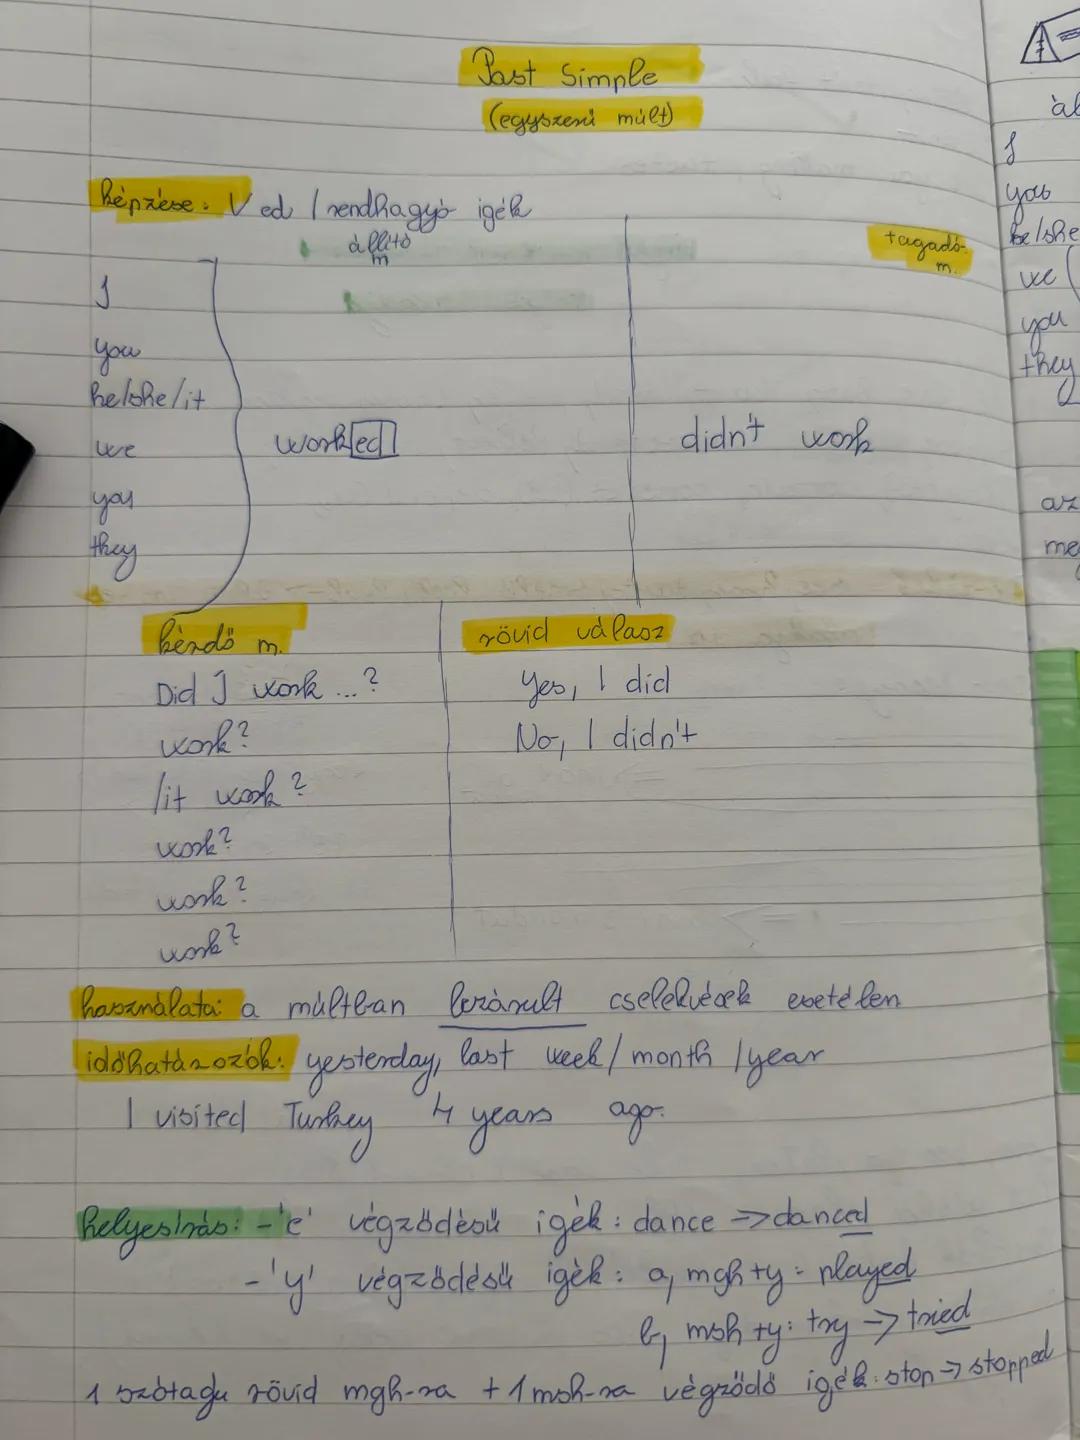 Past Simple
(egyszerű múlt)
képzése: V ed / rendhagyó igék
állító m
tagadó m.
I
you
he/she/it
we
you
they
worked
didn't work
kérdő m.
rövid válasz
Did I work ...?
Yes, I did
work?
No, I didn't
/it work?
work?
work?
work?
használata: a múltban lezárult cselekvések esetében
időhatározók: yesterday, last week / month / year
I visited Turkey 4 years ago.
helyesírás: -'e' végződésű igék: dance -> danced
-'y' végződésű igék: a, mgh+y: played
b, msh +y: try -> tried
1 szótagú rövid mgh-ra + 1 msh-ra végződő igék: stop -> stopped
I
you
he/she
we
you
they